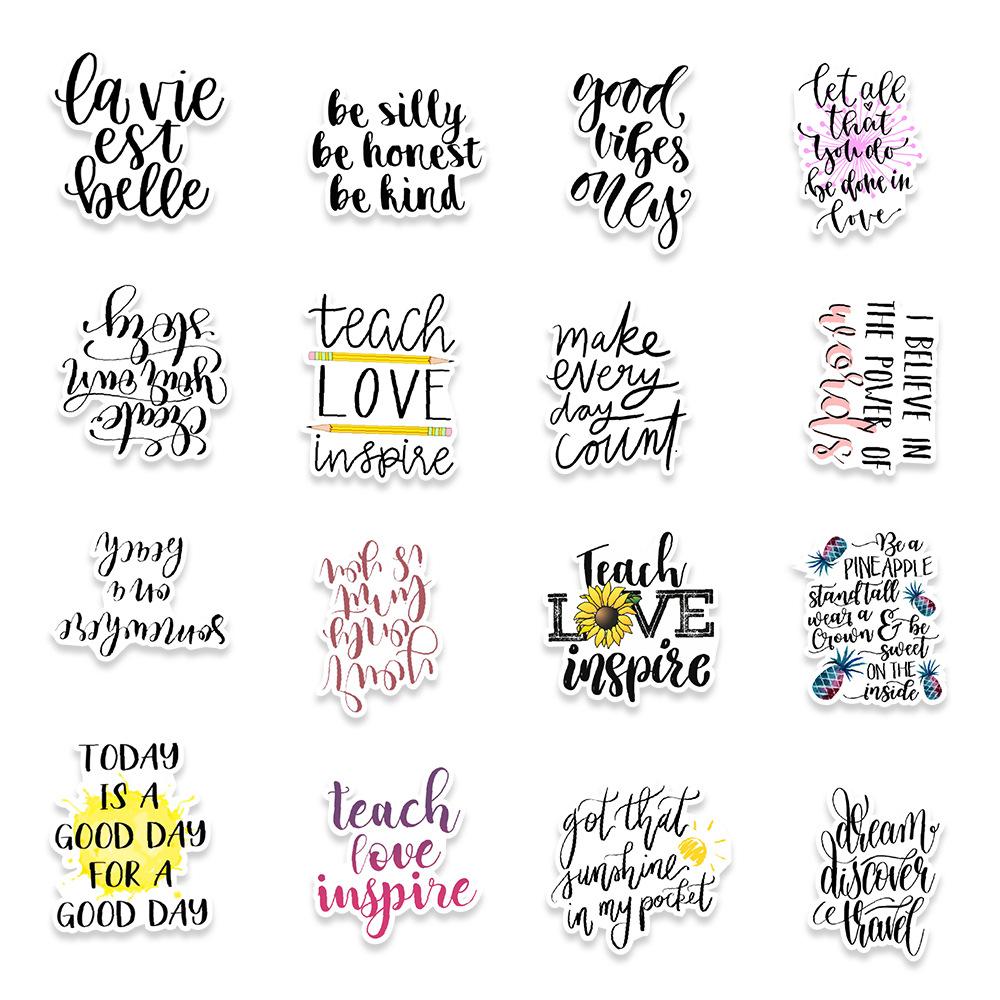 la vie
est
belle
be silly
be honest
be kind
good
vibes
only
let all
that
you do
be done in
love
create
your own
story
teach
LOVE
inspire
make
every
day
count.
I BELIEVE IN
THE POWER OF
words
somewhere
on a
beach
your
only
limit
is you
Teach
LOVE
inspire
Be a
PINEAPPLE
stand tall
wear a
Crown & be
sweet
ON THE
inside
TODAY
IS A
GOOD DAY
FOR A
GOOD DAY
teach
love
inspire
got that
sunshine
in my pocket
dream
discover
travel